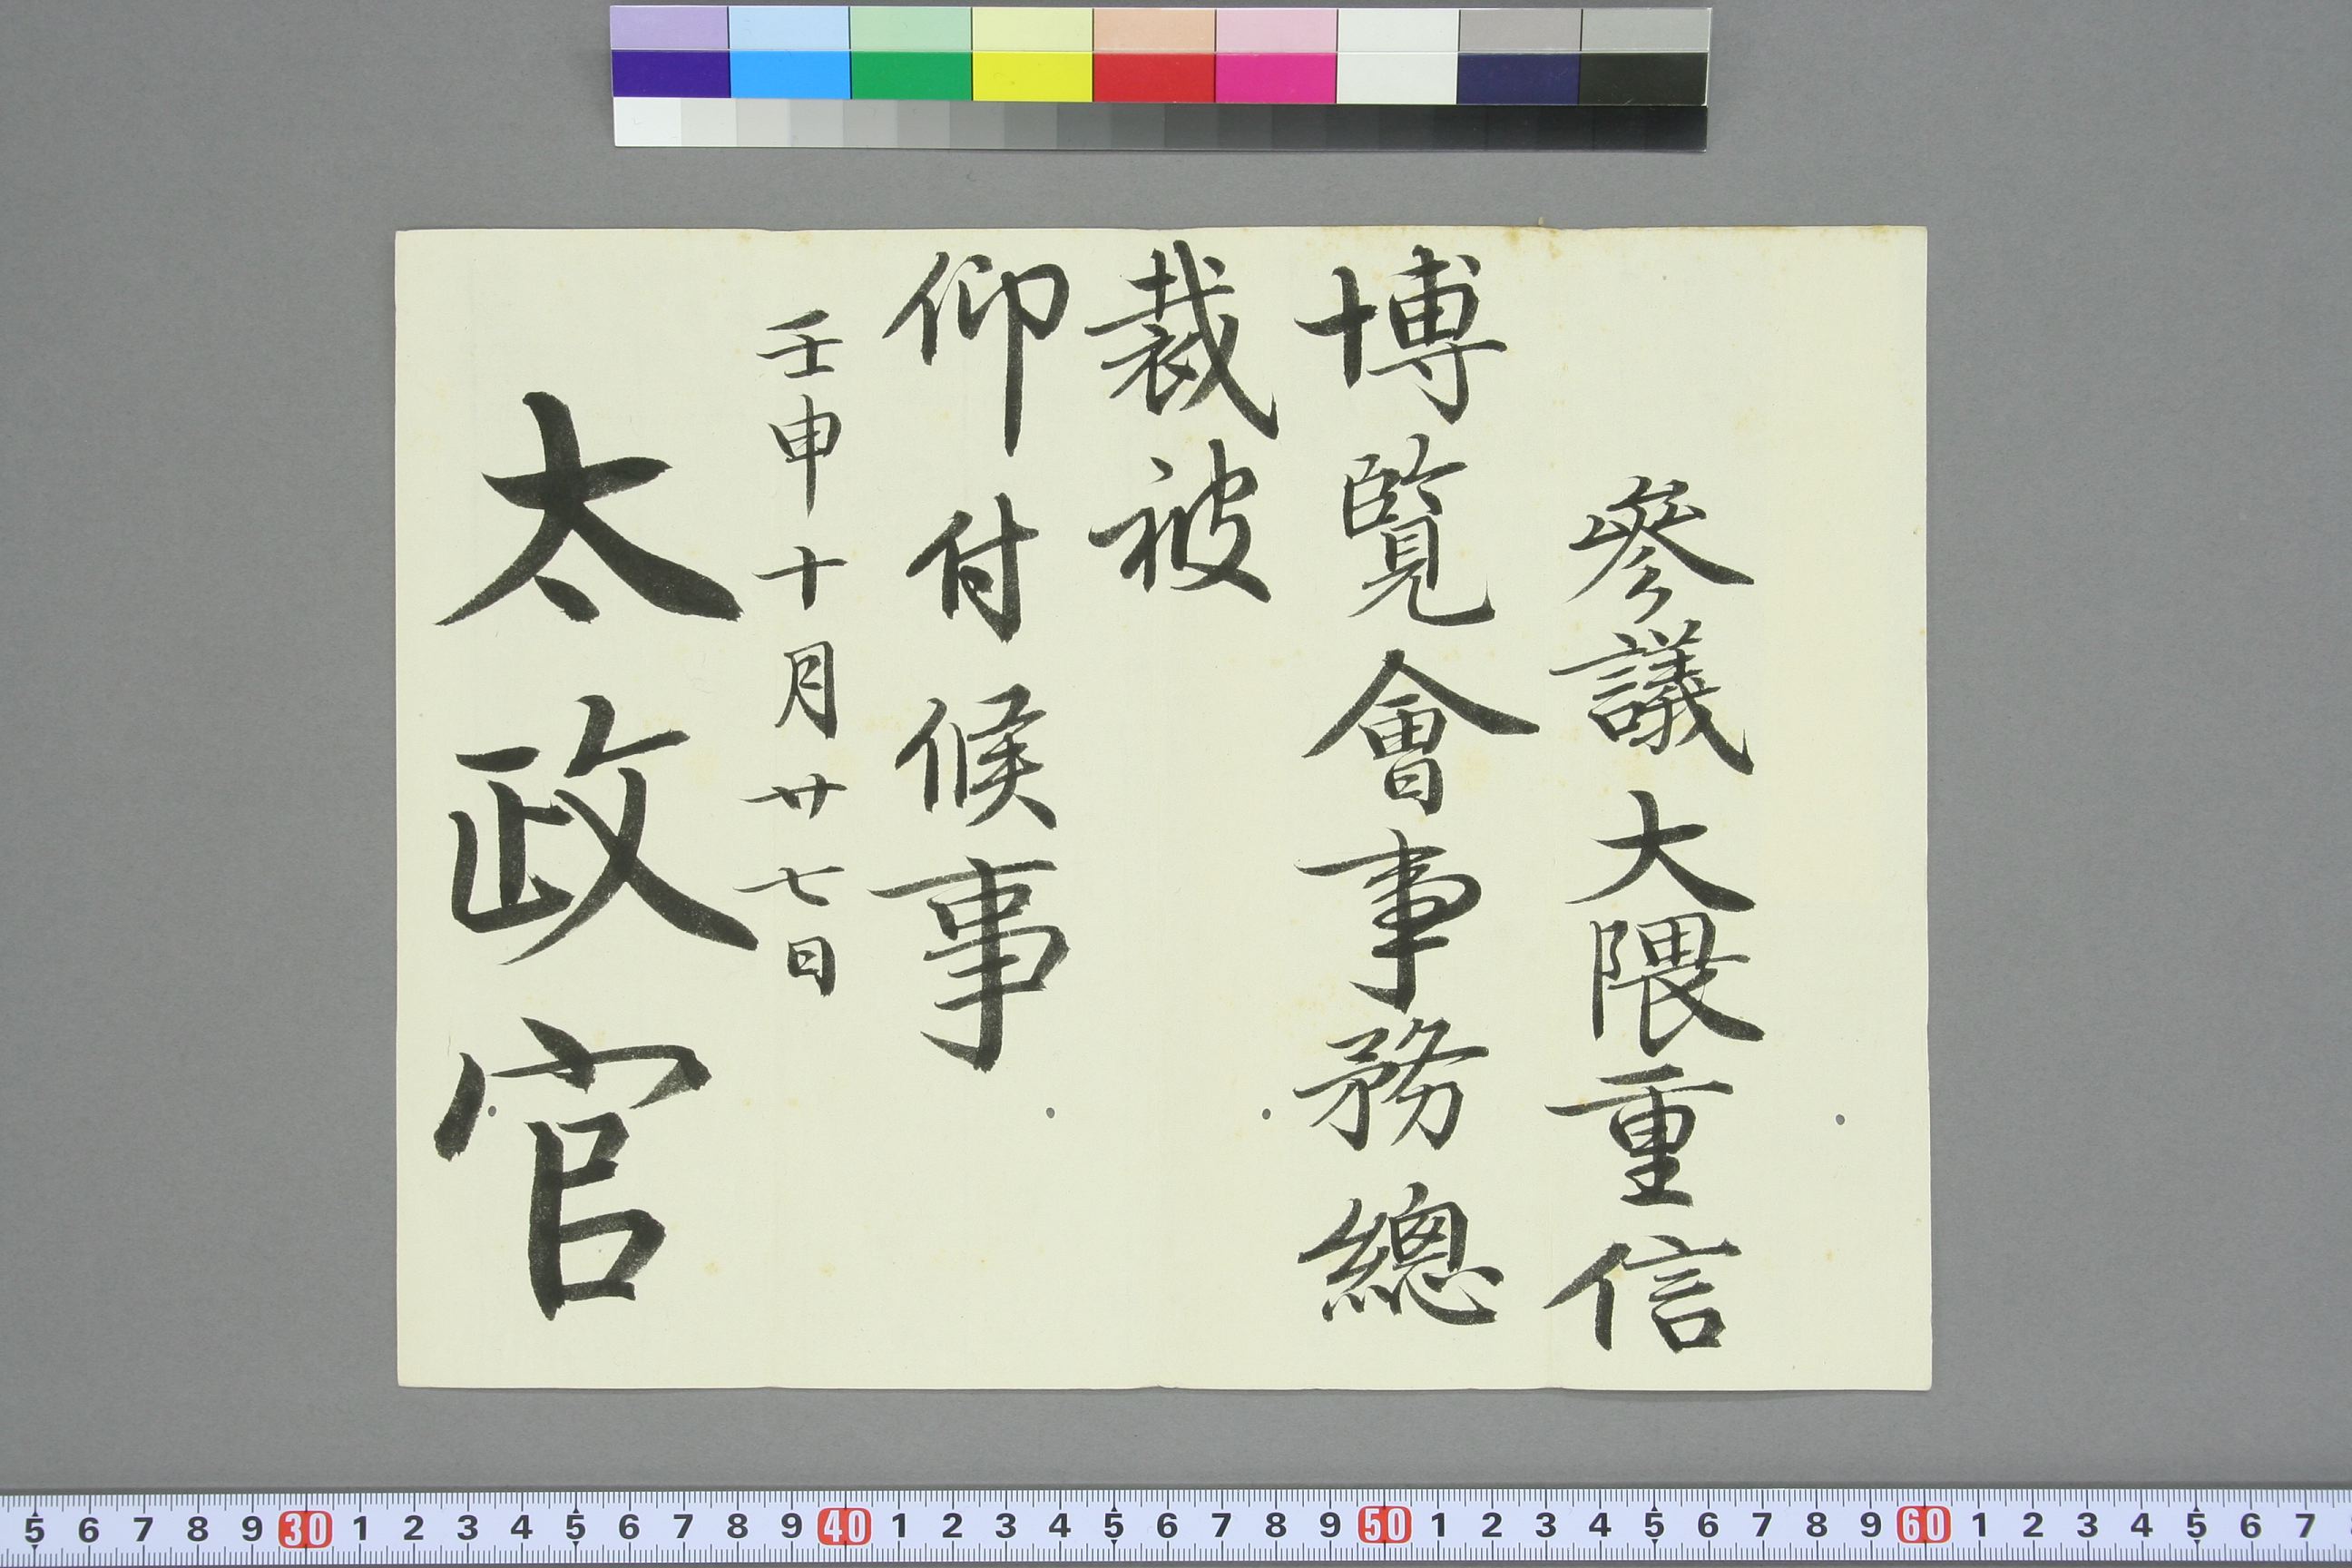 參議大隈重信
博覽會事務總
裁被
仰付候事
壬申十月廿七日
太政官
5 6 7 8 9 30 1 2 3 4 5 6 7 8 9 40 1 2 3 4 5 6 7 8 9 50 1 2 3 4 5 6 7 8 9 60 1 2 3 4 5 6 7